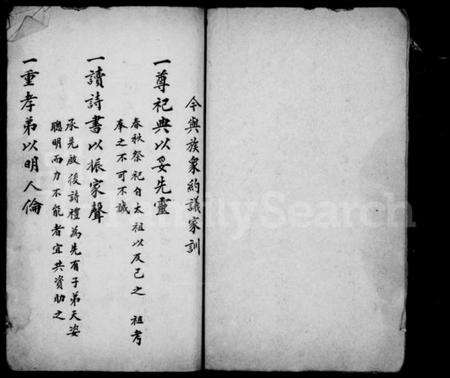 今與族衆約議家訓
一尊祀典以妥先靈
春秋祭祀自太祖以及己之 祖考
奉之不可不誠
一讀詩書以振家聲
承先啟後詩禮為先有子弟天姿
聰明而力不能者宜共資助之
一重孝弟以明人倫
FamilySearch